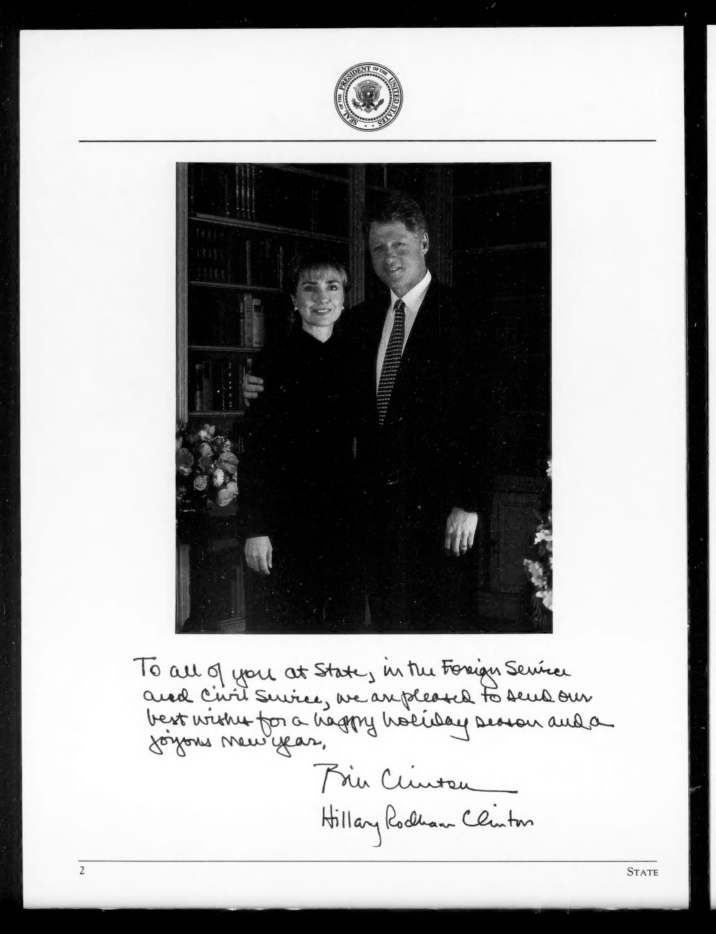 SEAL OF THE PRESIDENT OF THE UNITED STATES
To all of you at State, in the Foreign Service
and Civil Service, we are pleased to send our
best wishes for a happy holiday season and a
joyous new year.
Bill Clinton
Hillary Rodham Clinton
2
STATE